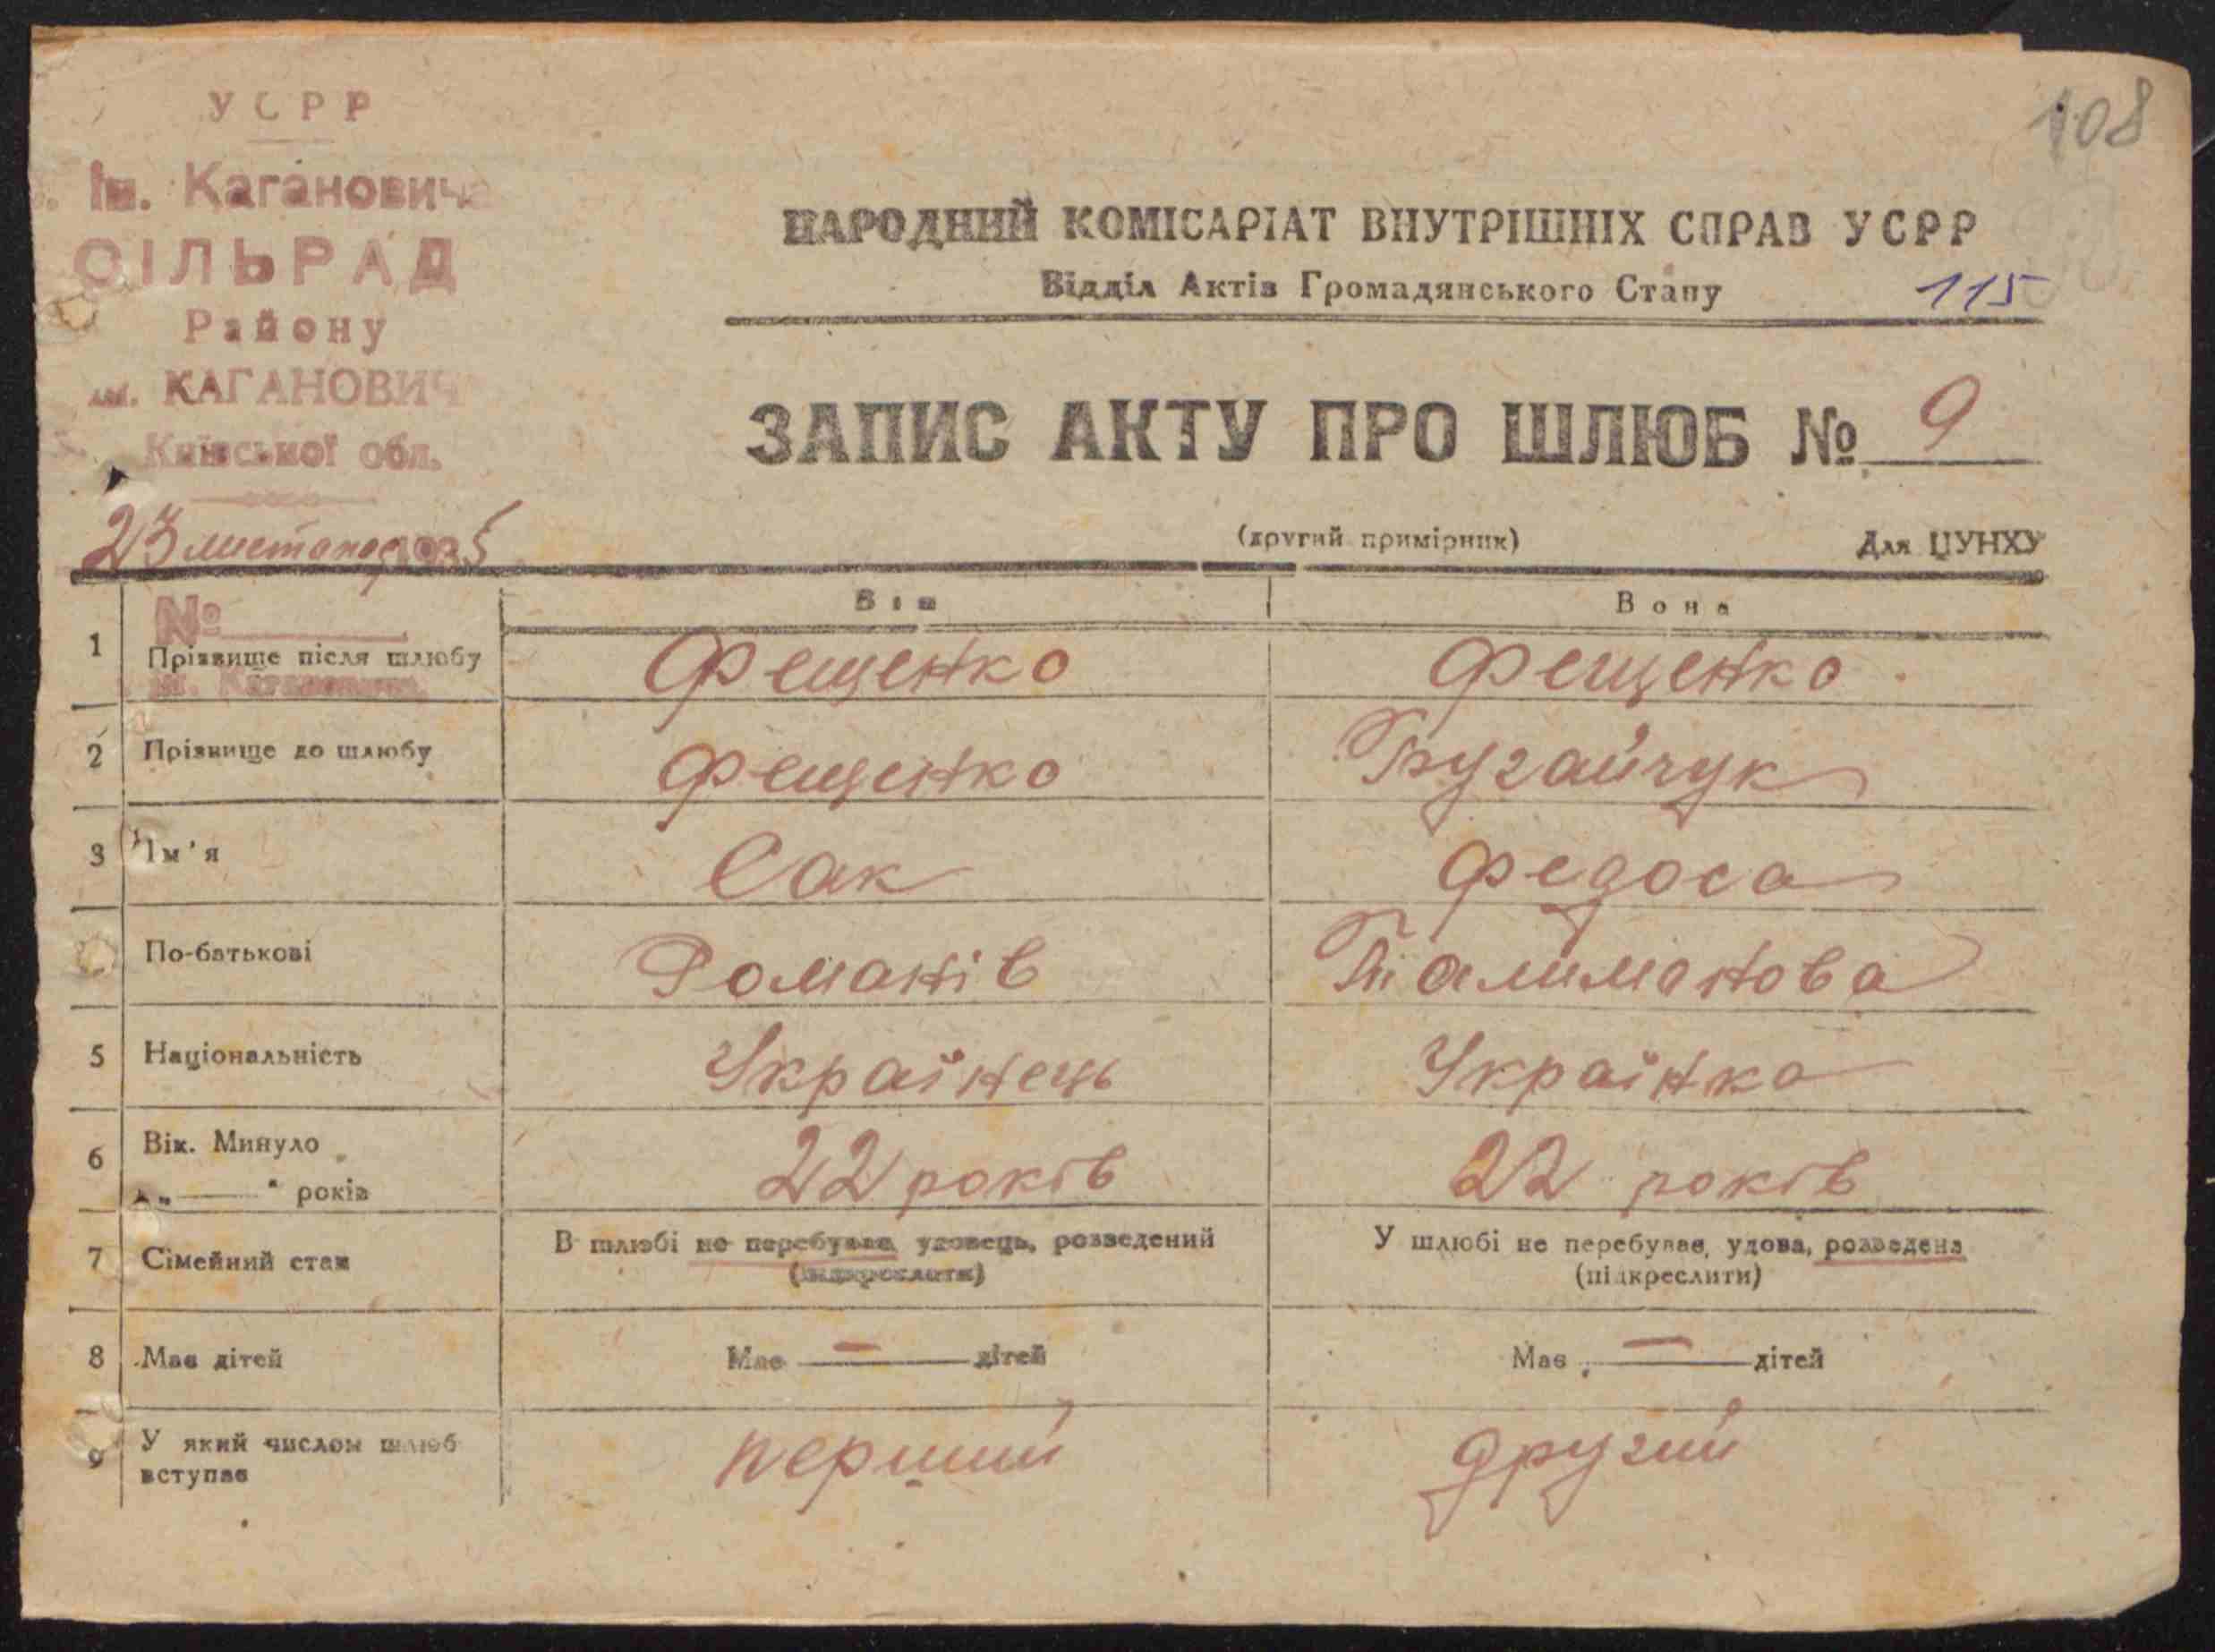 УСРР
Ім. Кагановича
СІЛЬРАД
Району
ім. КАГАНОВИЧ
Київської обл.
108
НАРОДНИЙ КОМІСАРІАТ ВНУТРІШНІХ СПРАВ УСРР
Відділ Актів Громадянського Стану 115
ЗАПИС АКТУ ПРО ШЛЮБ № 9
23 листопад 1935
(другий примірник) Для ЦУНХУ
Він Вона
№
1 Прізвище після шлюбу Фещенко Фещенко
ім. Кагановича
2 Прізвище до шлюбу Фещенко Бугайчук
3 Ім'я Сак Федоса
По-батькові Романів Талимонова
5 Національність Українець Українка
6 Вік. Минуло 22 років 22 років
„ — “ років
7 Сімейний стан В шлюбі не перебував, удовець, розведений У шлюбі не перебуває, удова, розведена
(підкреслити) (підкреслити)
8 Має дітей Має — дітей Має — дітей
9 У який числом шлюб перший другий
вступає